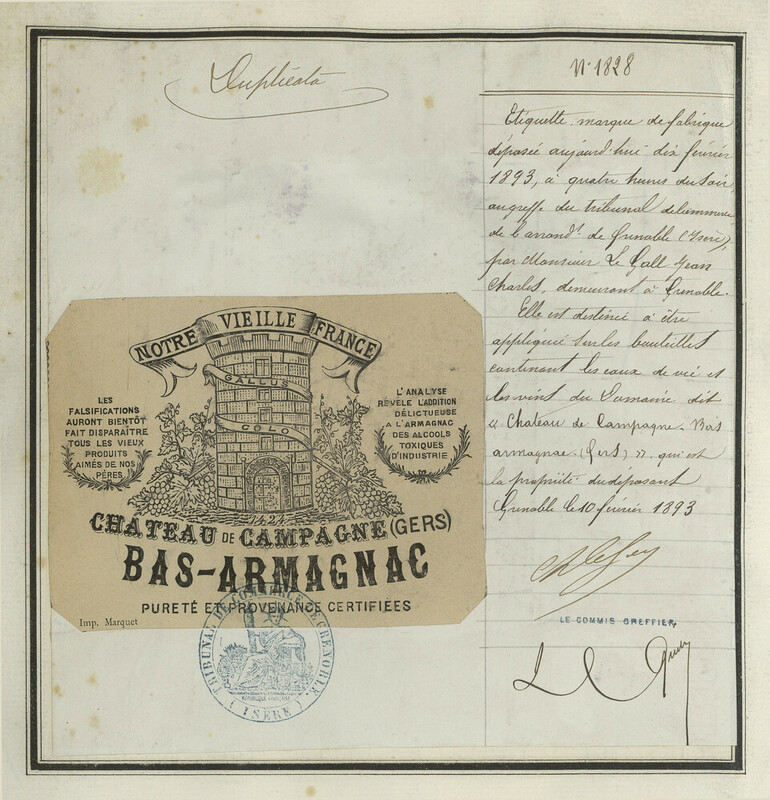 Duplicata
N° 1828
Etiquette-marque de fabrique
déposée aujourd'hui dix février
1893, à quatre heures du soir,
au greffe du tribunal de Commerce
de l'arrondt de Grenoble (Isère),
par Monsieur Le Gall Jean
Charles, demeurant à Grenoble.
Elle est destinée à être
appliquée sur les bouteilles
contenant les eaux de vie et
les vins du Domaine dit
« Chateau de Campagne. Bas
armagnac. (Gers) » qui est
la propriété du déposant
Grenoble le 10 février 1893
LE COMMIS GREFFIER,
NOTRE VIEILLE FRANCE
GALLUS
COLO
LES
FALSIFICATIONS
AURONT BIENTÔT
FAIT DISPARAÎTRE
TOUS LES VIEUX
PRODUITS
AIMÉS DE NOS
PÈRES.
L'ANALYSE
RÉVÈLE L'ADDITION
DÉLICTUEUSE
A L'ARMAGNAC
DES ALCOOLS
TOXIQUES
D'INDUSTRIE
1424
CHATEAU DE CAMPAGNE (GERS)
BAS-ARMAGNAC
PURETÉ ET PROVENANCE CERTIFIÉES
Imp. Marquet
TRIBUNAL DE COMMERCE DE GRENOBLE
(ISÈRE)